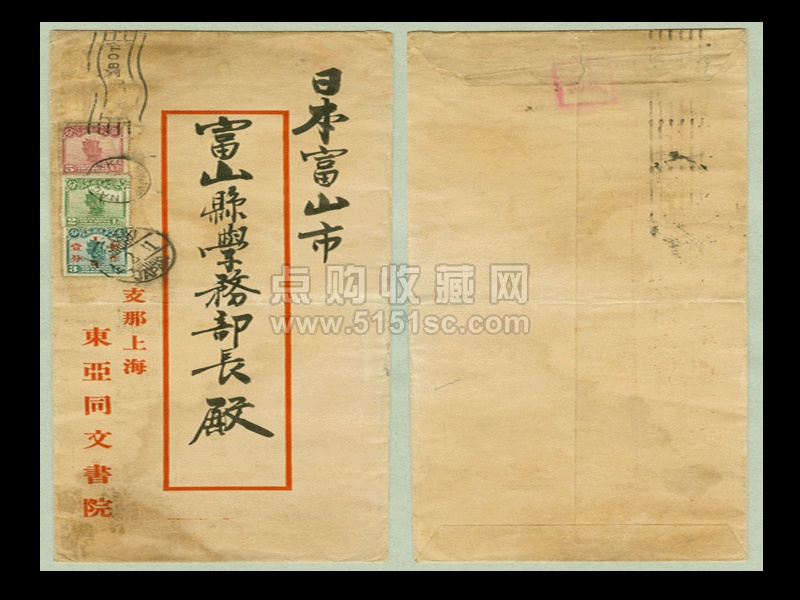 日本富山市
富山縣學務部長殿
支那上海
東亞同文書院
5
2
暫作
壹分
3
点购收藏网
www.5151sc.com